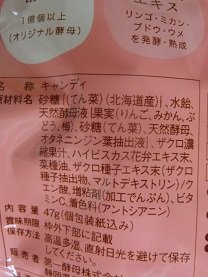 1億個以上
(オリジナル酵母)
エキス
リンゴ・ミカン・
ブドウ・ウメ
を発酵・熟成
名 称 キャンディ
原材料名 砂糖{(てん菜)(北海道産)}、水飴、
天然酵母液{果実(りんご、みかん、ぶ
どう、梅)、砂糖(てん菜)、天然酵母、
オタネニンジン葉抽出液}、ザクロ濃
縮果汁、ハイビスカス花弁エキス末、
菜種油、ザクロ種子エキス末(ザクロ
種子抽出物、マルトデキストリン)/ク
エン酸、増粘剤(加工でんぷん)、ビタミ
ンC、着色料(アントシアニン)
内 容 量 47g(個包装紙込み)
賞味期限 枠外下部に記載
保存方法 高温多湿、直射日光を避けて保存
してください。
販売者 第一酵母株式会社